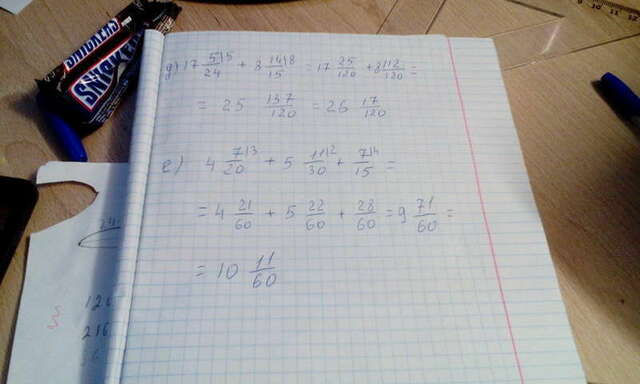 SNICKERS
д) 17 5/24 \5 + 8 14/15 \8 = 17 25/120 + 8 112/120 =
= 25 137/120 = 26 17/120
е) 4 7/20 \3 + 5 11/30 \2 + 7/15 \4 =
= 4 21/60 + 5 22/60 + 28/60 = 9 71/60 =
= 10 11/60
216